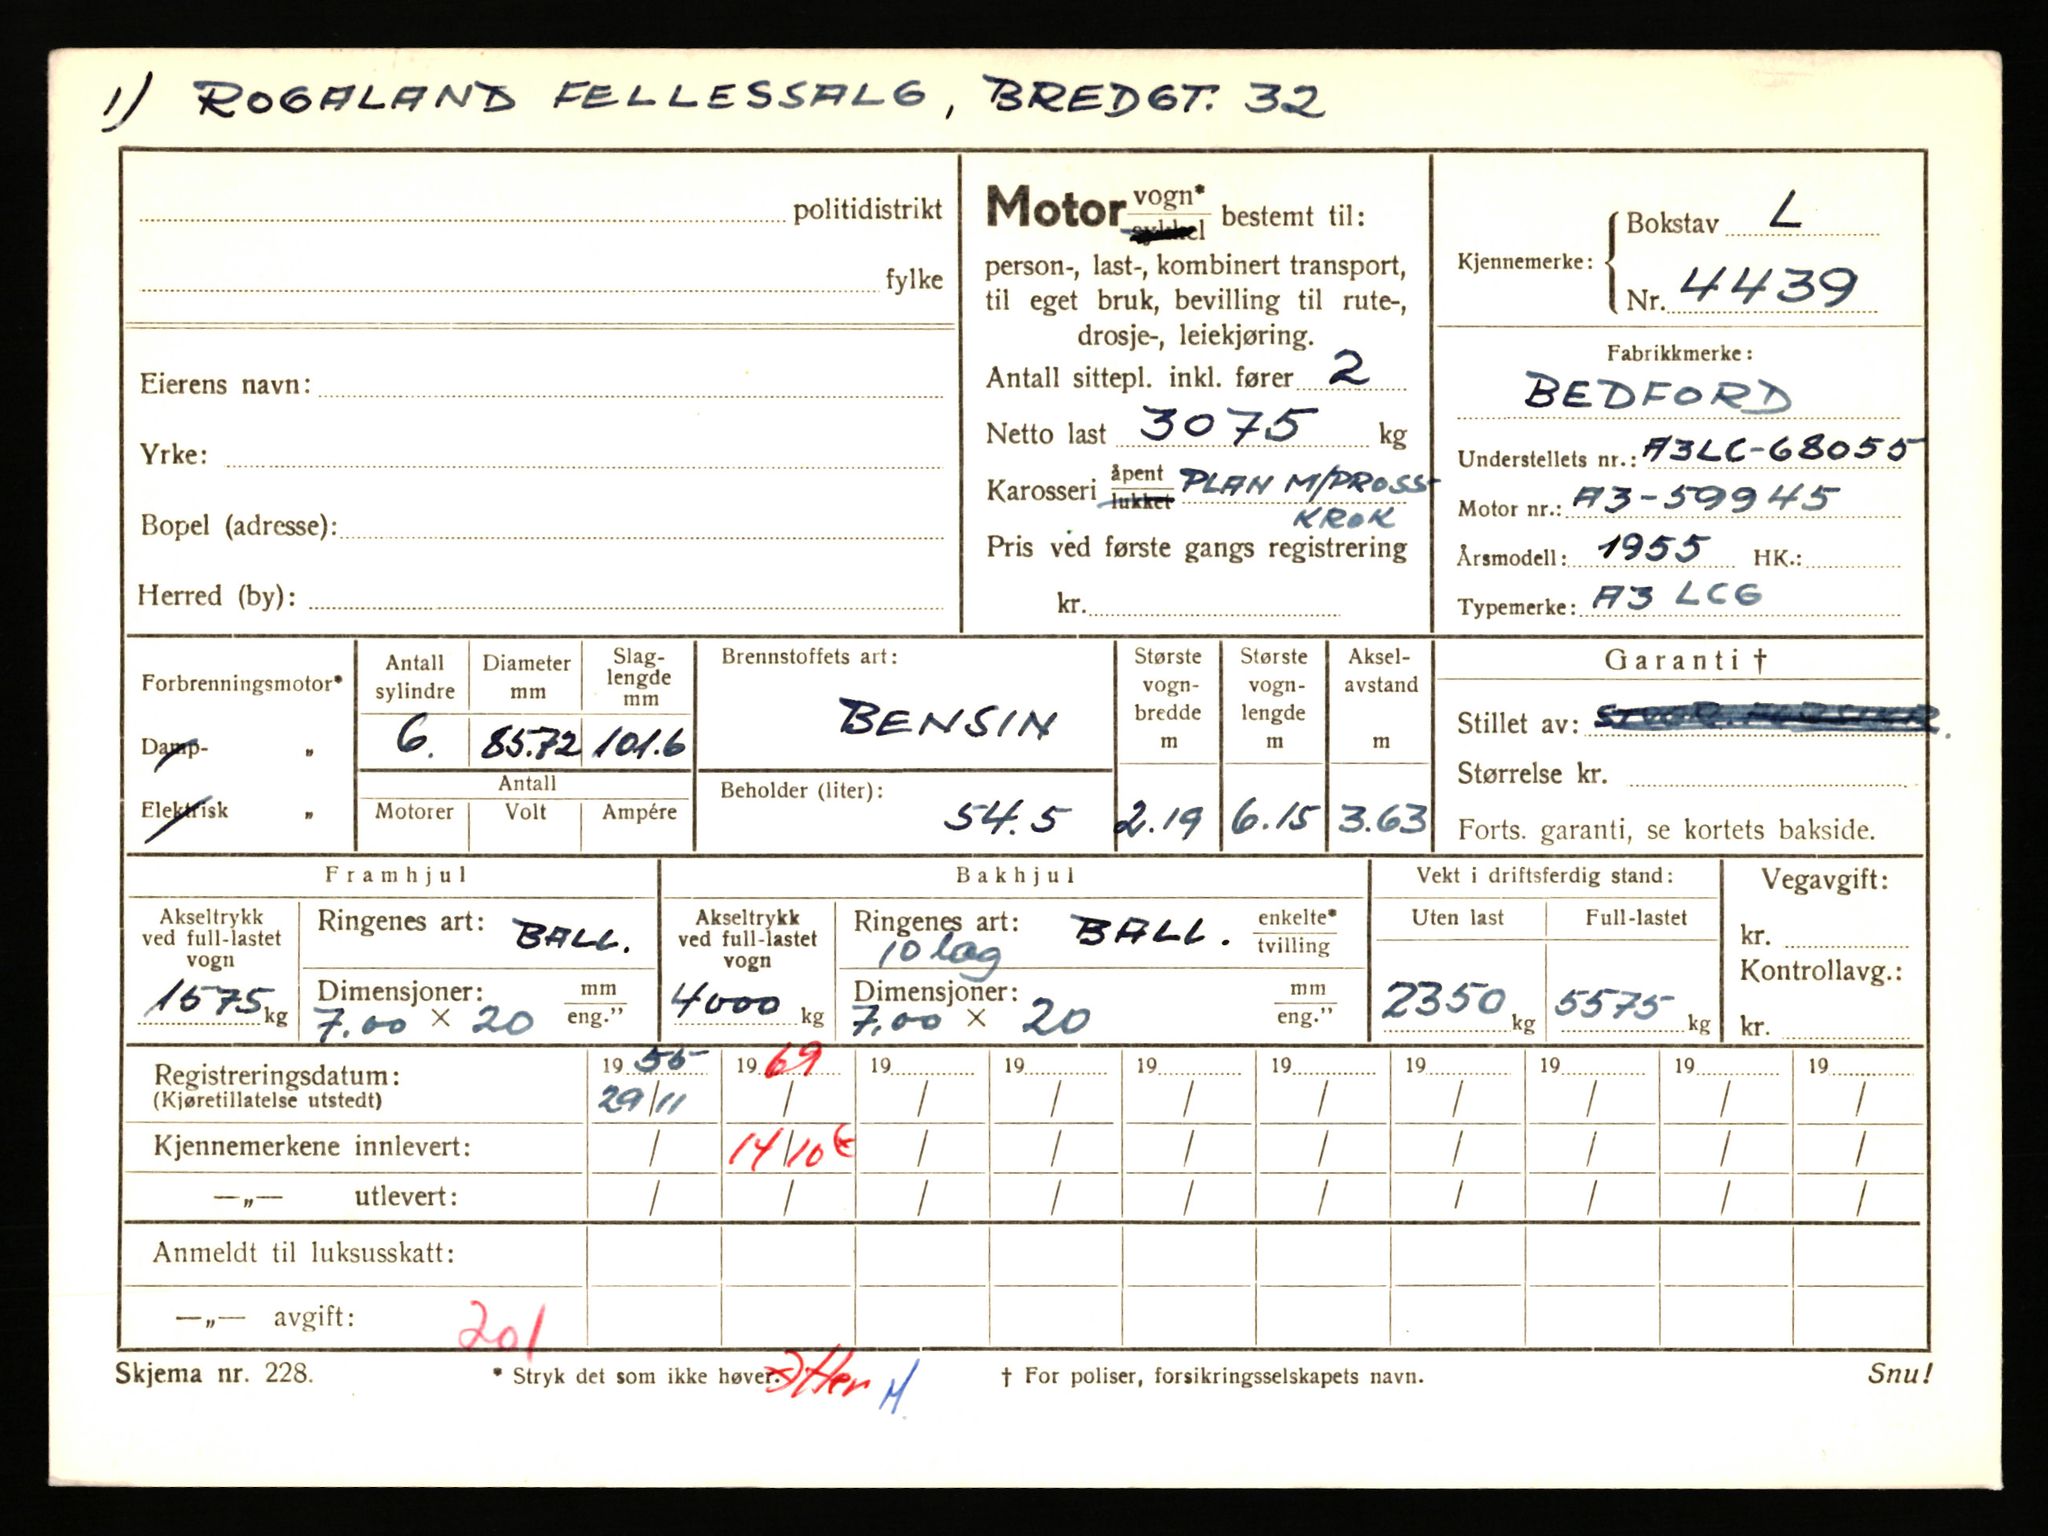 1) ROGALAND FELLESSALG, BREDGT. 32
politidistrikt
fylke
Eierens navn:
Yrke:
Bopel (adresse):
Herred (by):
Motor vogn* sykkel bestemt til:
person-, last-, kombinert transport,
til eget bruk, bevilling til rute-,
drosje-, leiekjøring.
Antall sittepl. inkl. fører 2
Netto last 3075 kg
Karosseri åpent lukket PLAN M/PROSS-
KROK
Pris ved første gangs registrering
kr.
Kjennemerke: Bokstav L
Nr. 4439
Fabrikkmerke:
BEDFORD
Understellets nr.: A3LC-68055
Motor nr.: A3-59945
Årsmodell: 1955 HK.:
Typemerke: A3 LCG
Forbrenningsmotor*
Damp- „
Elektrisk „
Antall sylindre
6.
Diameter mm
85.72
Slag-
lengde
mm
101.6
Antall
Motorer Volt Ampére
Brennstoffets art:
BENSIN
Beholder (liter):
54.5
Største
vogn-
bredde
m
2.19
Største
vogn-
lengde
m
6.15
Aksel-
avstand
m
3.63
Garanti †
Stillet av:
Størrelse kr.
Forts. garanti, se kortets bakside.
Framhjul
Akseltrykk
ved full-lastet
vogn
1575 kg
Ringenes art: BALL.
Dimensjoner: mm
7.00 × 20 eng."
Bakhjul
Akseltrykk
ved full-lastet
vogn
4000 kg
Ringenes art: BALL. enkelte*
10 lag tvilling
Dimensjoner: mm
7.00 × 20 eng."
Vekt i driftsferdig stand:
Uten last Full-lastet
2350 kg 5575 kg
Vegavgift:
kr.
Kontrollavg.:
kr.
Registreringsdatum: 19 55 19 69 19 19 19 19 19 19 19 19
(Kjøretillatelse utstedt) 29/11 / / / / / / / / /
Kjennemerkene innlevert: / 14/10 / / / / / / / /
—„— utlevert: / / / / / / / / / /
Anmeldt til luksusskatt:
—„— avgift: 201
Skjema nr. 228. * Stryk det som ikke høver. † For poliser, forsikringsselskapets navn. Snu!